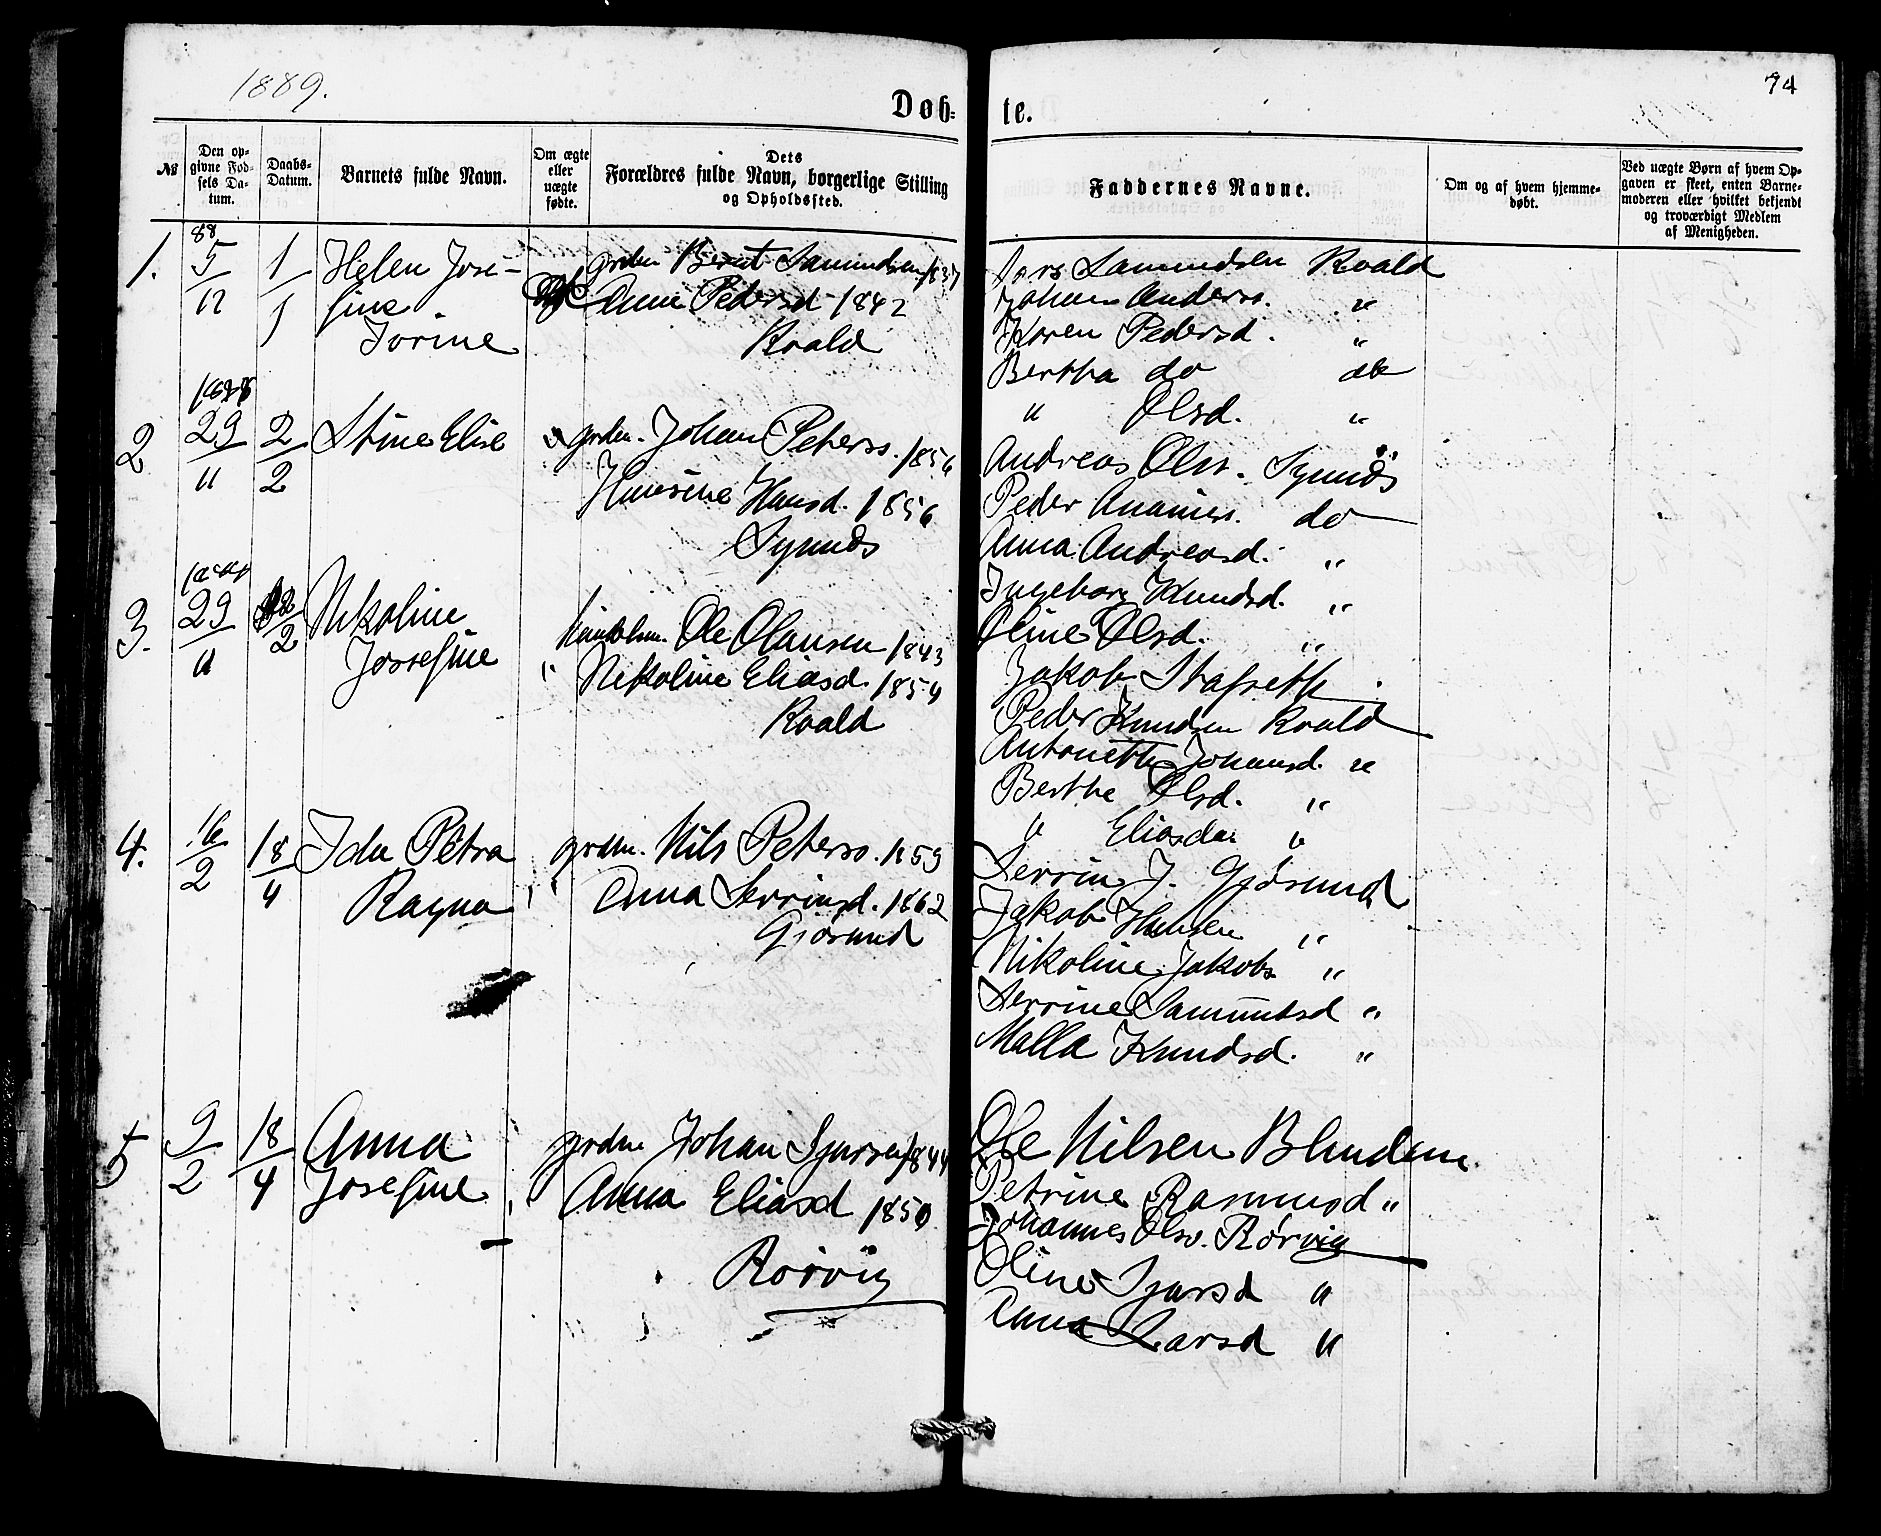 1889.
74
Døb-
te.
№
Den op-
givne Fød-
sels Da-
tum.
Daabs-
Datum.
Barnets fulde Navn.
Om ægte
eller
uægte
fødte.
Dets
Forældres fulde Navn, borgerlige Stilling
og Opholdssted.
Faddernes Navne.
Om og af hvem hjemme-
døbt.
Ved uægte Børn af hvem Op-
gaven er skeet, enten Barne-
moderen eller hvilket bekjendt
og troværdigt Medlem
af Menigheden.
1.
88
5/12
1/1
Helen Jose-
fine
Jorine
Bernt Samundsen 1837
Anne Pedersd 1842
Roald
Lars Samundsen Roald
Johan Anderss. "
Karen Pedersd. "
Bertha do do
" Olsd. "
2
1888
29/11
2/2
Stine Elise
" grdm. Johan Peterss. 1856
Hansine Hansd. 1856
Synnæs
Andreas Olss. Synnæs
Peder Ananiess. do
Anna Andreasd. "
Ingeborg Knudsd. "
Oline Olsd. "
3.
1888
29/11
2
Nikoline
Josefine
Ole Olausen 1843
" Nikoline Eliasd. 1854
Roald
Jakob Stafseth
Peder Knudsen Roald
Antonette Johansd. "
Berthe Olsd. "
" Eliasd. "
4.
16/2
18/4
Ida Petra
Ragna
grdm. Nils Peterss. 1859
" Anna Serrinsd. 1862
Gjøsund
Serrin J. Gjøsund
Jakob Hansen "
Nikoline Jakobs "
Serrine Samuntsd "
Malla Knudsd. "
5
9/2
18/4
Anna
Josefine
grdm Johan Sjursen 1844
" Anna Eliasd 1850
Rørvig
Ole Nilsen Blindem
Petrine Rasmusd "
Johannes Olss. Rørvig
Oline Sjursd "
Anna Larsd "